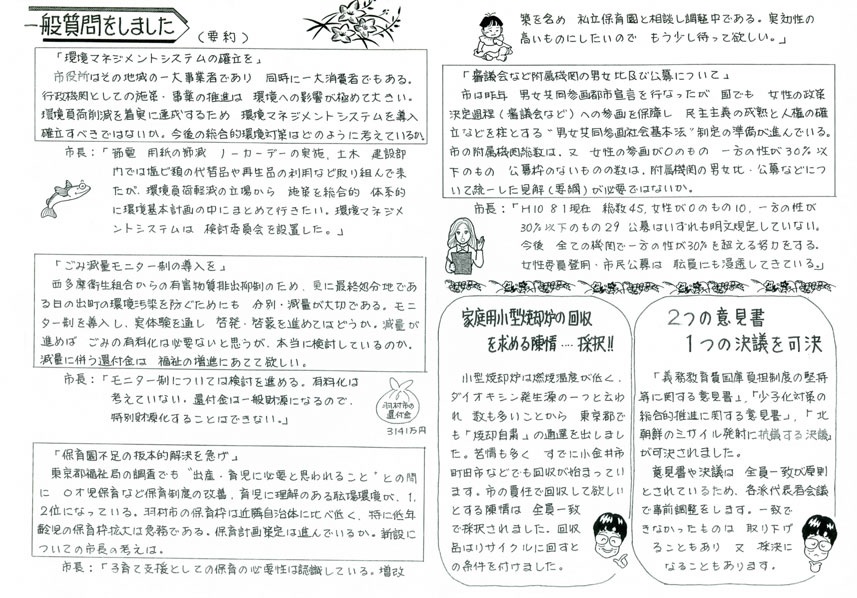 一般質問をしました
(要約)
「環境マネジメントシステムの確立を」
市役所はその地域の一大事業者であり 同時に一大消費者でもある。
行政機関としての施策・事業の推進は 環境への影響が極めて大きい。
環境負荷削減を着実に達成するため 環境マネジメントシステムを導入
確立すべきではないか。今後の総合的環境対策はどのように考えているか。
市長:「節電 用紙の節減 ノーカーデーの実施、土木 建設部
門では塩ビ類の代替品や再生品の利用など取り組んで来
たが、環境負荷軽減の立場から 施策を総合的 体系的
に環境基本計画の中にまとめて行きたい。環境マネジメ
ントシステムは 検討委員会を設置した。」
「ごみ減量モニター制の導入を」
西多摩衛生組合からの有害物質排出抑制のため、更に最終処分地であ
る日の出町の環境汚染を防ぐためにも 分別・減量が大切である。モニ
ター制を導入し、実体験を通し 啓発・啓蒙を進めてはどうか。減量が
進めば ごみの有料化は必要ないと思うが、本当に検討しているのか。
減量に伴う還付金は 福祉の増進にあてて欲しい。
市長:「モニター制については検討を進める。有料化は
考えていない。還付金は一般財源になるので、
特別財源化することはできない。」
羽村市の
還付金
3141万円
「保育園不足の抜本的解決を急げ」
東京都福祉局の調査でも"出産・育児に必要と思われること"との問
に 0才児保育など保育制度の改善、育児に理解のある職場環境が、1、
2位になっている。羽村市の保育枠は近隣自治体に比べ低く、特に低年
齢児の保育枠拡大は急務である。保育計画策定は進んでいるか。新設に
ついての市長の考えは。
市長:「子育て支援としての保育の必要性は認識している。増改
築を含め 私立保育園と相談し調整中である。実効性の
高いものにしたいので もう少し待って欲しい。」
「審議会など附属機関の男女比及び公募について」
市は昨年 男女共同参画都市宣言を行なったが 国でも 女性の政策
決定過程(審議会など)への参画を保障し 民主主義の成熟と人権の確
立などを柱とする"男女共同参画社会基本法"制定の準備が進んでいる。
市の附属機関総数は、又 女性の参画が0のもの 一方の性が30%以
下のもの 公募枠のないものの数は、附属機関の男女比・公募などにつ
いて統一した見解(要綱)が必要ではないか。
市長:「H10 8 1現在 総数45、女性が0のもの10、一方の性が
30%以下のもの29 公募はいずれも明文規定していない。
今後 全ての機関で一方の性が30%を超える努力をする。
女性委員登用・市民公募は 職員にも浸透してきている。」
家庭用小型焼却炉の回収
を求める陳情‥‥採択!!
小型焼却炉は燃焼温度が低く、
ダイオキシン発生源の一つと云わ
れ 数も多いことから 東京都で
も「焼却自粛」の通達を出しまし
た。苦情も多く すでに小金井市
町田市などでも回収が始まってい
ます。市の責任で回収して欲しい
とする陳情は 全員一致
で採択されました。回収
品はリサイクルに回すと
の条件を付けました。
2つの意見書
1つの決議を可決
「義務教育費国庫負担制度の堅持
等に関する意見書」、「少子化対策の
総合的推進に関する意見書」、「北
朝鮮のミサイル発射に抗議する決議」
が可決されました。
意見書や決議は 全員一致が原則
とされているため、各派代表者会議
で事前調整をします。一致で
きなかったものは 取り下げ
ることもあり 又 採決に
なることもあります。